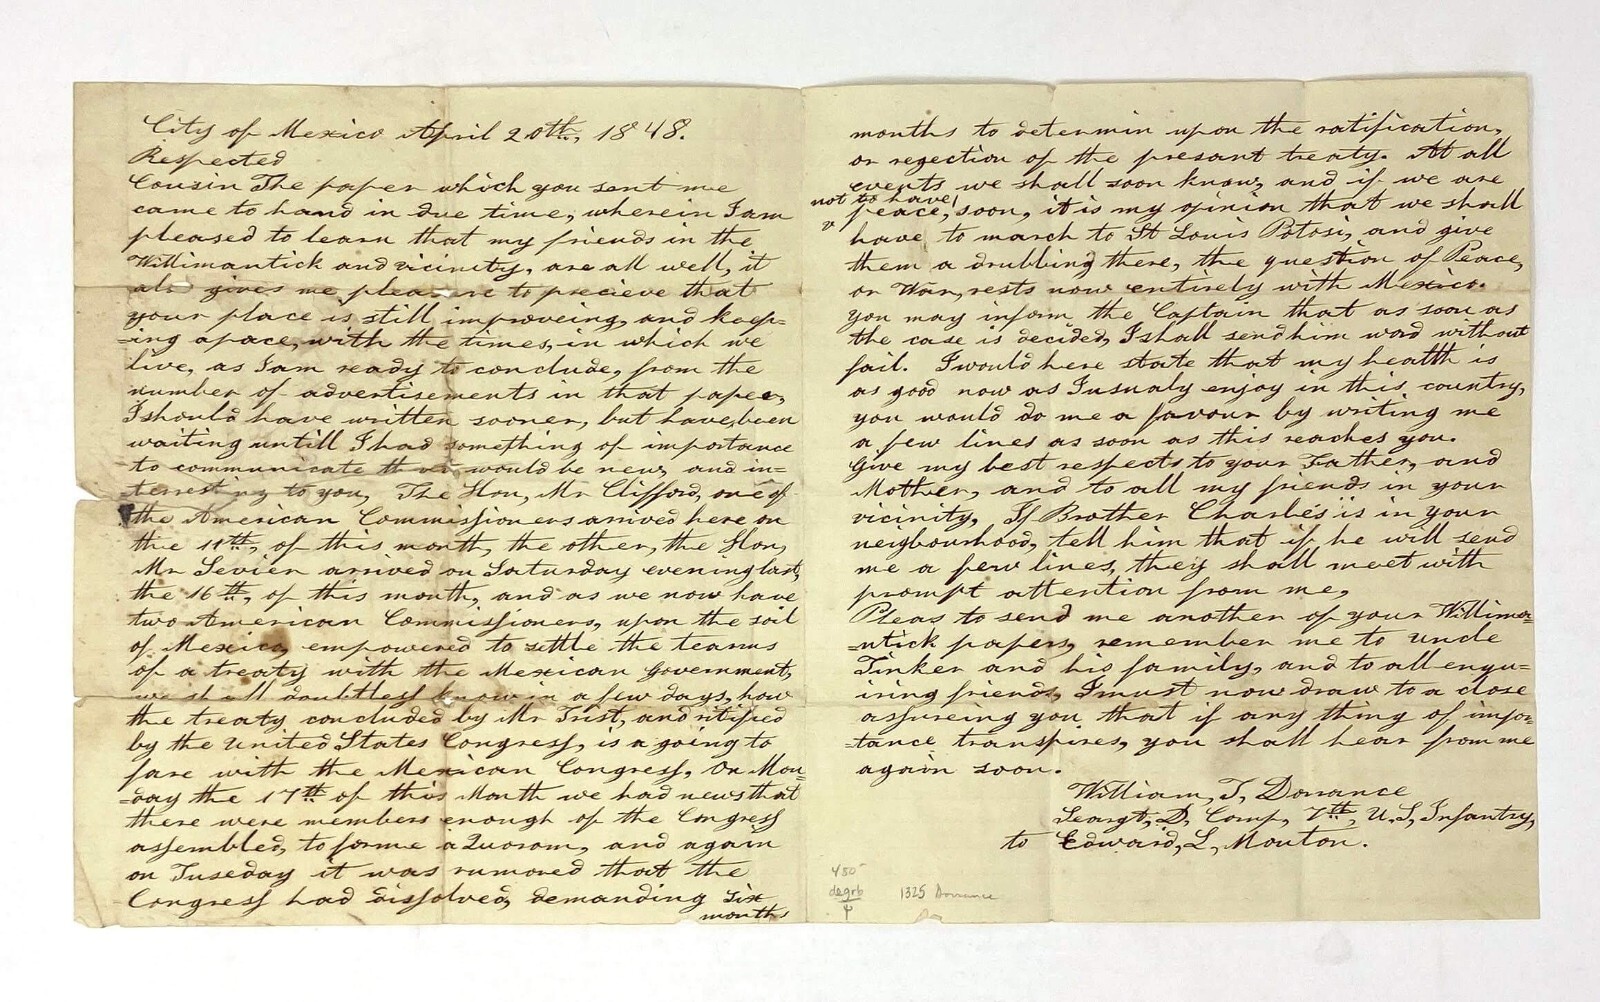 City of Mexico April 20th, 1848.
Respected
Cousin The paper which you sent me
came to hand in due time, wherein I am
pleased to learn that my friends in the
Willimantick and vicinity, are all well, it
also gives me pleasure to precieve that
your place is still improveing, and keep=
=ing apace, with the times, in which we
live, as I am ready to conclude, from the
number of advertisements in that paper,
I should have written sooner, but have been
waiting untill I had something of importance
to communicate that would be new, and in=
=terresting to you, The Hon, Mr Clifford, one of
the American Commissioners arrived here on
the 11th, of this month, the other, the Hon,
Mr Sevier arrived on Saturday evening last,
the 16th, of this month, and as we now have
two American Commissioners, upon the soil
of Mexico, empowered to settle the tearms
of a treaty with the Mexican Government,
we shall doubtless know in a few days, how
the treaty concluded by Mr Trist, and ritified
by the United States Congress, is a going to
fare with the Mexican Congress, On Mon=
=day the 17th of this Month we had news that
there were members enough of the Congress
assembled, to forme a Quoram, and again
on Tuseday it was rumored that the
Congress had dissolved, demanding six
months
months to determin upon the ratification,
or regection of the presant treaty. At all
events we shall soon know, and if we are
not to have
peace, soon, it is my opinion that we shall
have to march to St Louis Potosi, and give
them a drubbing there, the question of Peace,
or War, rests now entirely with Mexico.
you may inform the Captain that as soon as
the case is decided, I shall send him word without
fail. I would here state that my health is
as good now as I usualy enjoy in this country,
you would do me a favour by writing me
a few lines as soon as this reaches you.
Give my best respects to your Father, and
Mother, and to all my friends in your
vicinity, If Brother Charles is in your
neighbourhood, tell him that if he will send
me a few lines, they shall meet with
prompt attention from me,
Pleas to send me another of your Willima=
=ntick papers, remember me to uncle
Tinker and his family, and to all enqu=
iring friends, I must now draw to a close
assureing you, that if any thing of impor=
=tance transpires, you shall hear from me
again soon.
William, T, Dorrance
Seargt, D, Comp, 7th, U, S, Infantry,
to Edward, L, Mouton.
450
degrb
1325 Dorrance